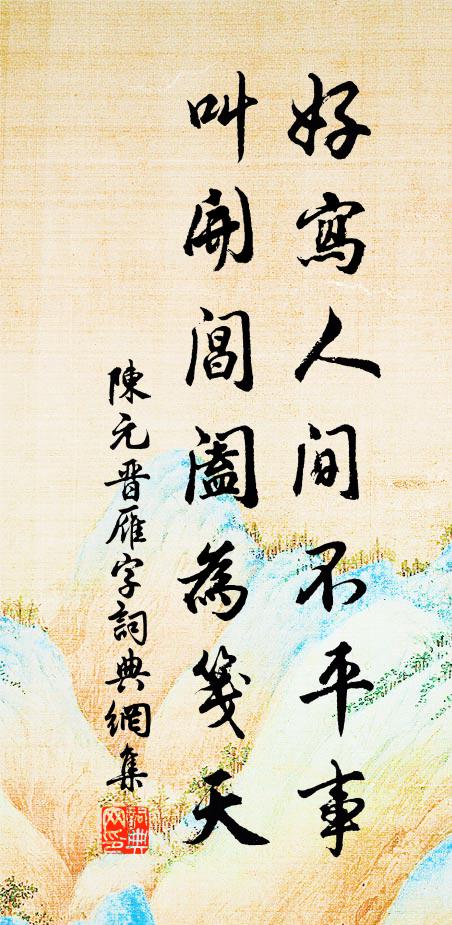 好寫人间不平事
叫開閶闔為箋天
陳元晋雁字詞典網集
詞典
网印